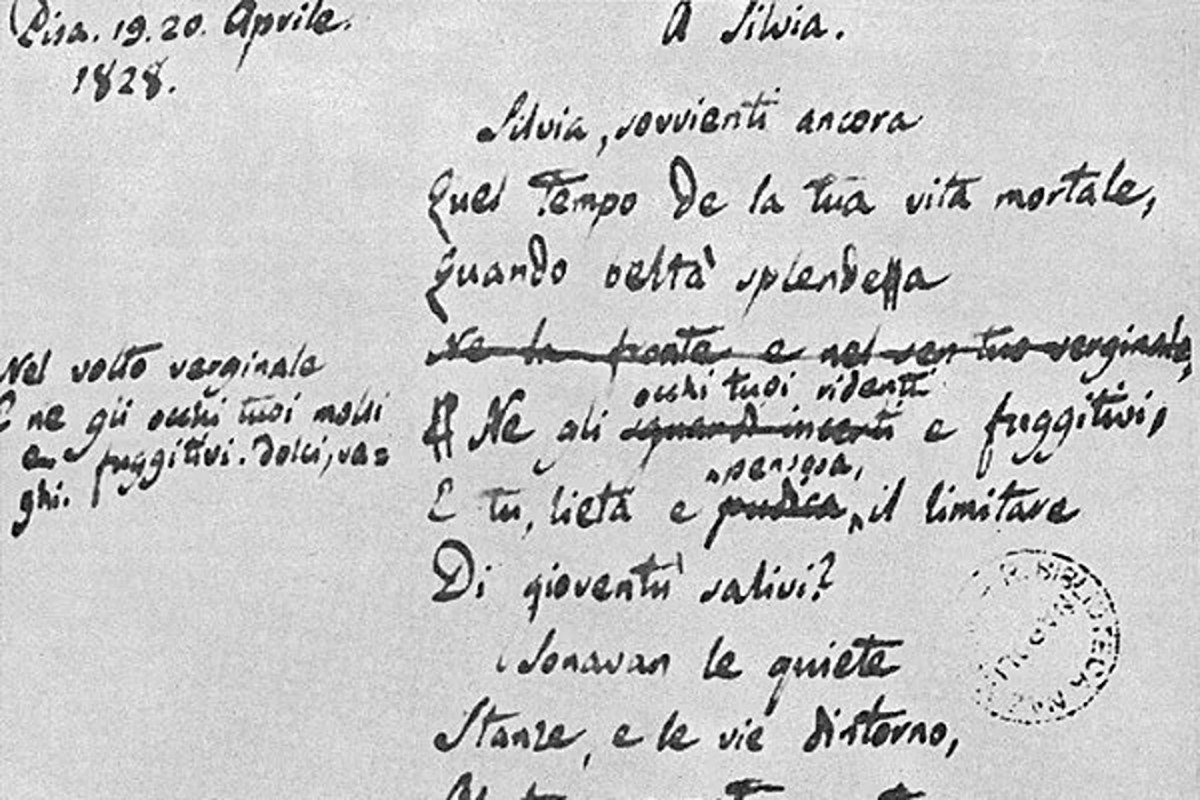 Pisa. 19. 20. Aprile.
1828.
A Silvia.
Silvia, sovvienti ancora
Quel tempo de la tua vita mortale,
Quando beltà splendea
Ne la fronte e nel sen tuo verginale,
occhi tuoi ridenti
Ne gli sguardi incerti e fuggitivi,
pensosa,
E tu, lieta e pudica, il limitare
Di gioventù salivi?
Sonavan le quiete
Stanze, e le vie dintorno,
Nel volto verginale
E ne gli occhi tuoi molli
e fuggitivi. dolci, va=
ghi.
R. BIBLIOTECA NAZ.
NAPOLI